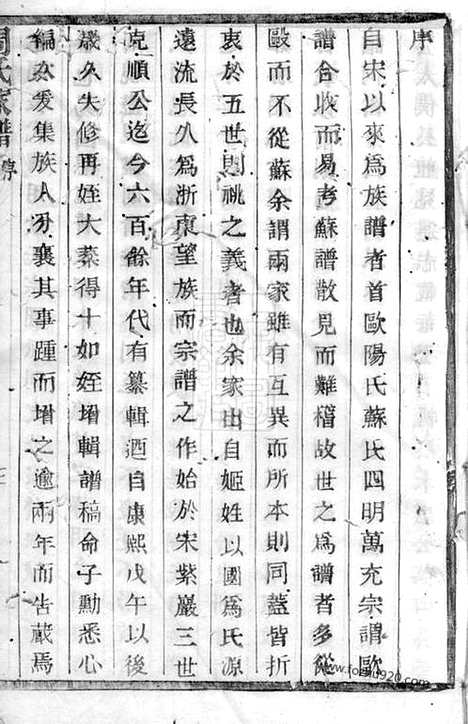 序
自宋以來爲族譜者首歐陽氏蘇氏四明萬充宗謂歐
譜合收而易考蘇譜散見而難稽故世之爲譜者多從
歐而不從蘇余謂兩家雖有互異而所本則同蓋皆折
衷於五世則祧之義者也余家出自姬姓以國爲氏源
遠流長久爲浙東望族而宗譜之作始於宋紫巖三世
克順公迄今六百餘年代有纂輯迺自康熙戊午以後
歲久失修再姪大棻得十如姪增輯譜稿命子勲悉心
編次爰集族人分襄其事踵而增之逾兩年而告蕆焉
周氏家譜 序
www.fozhu920.com